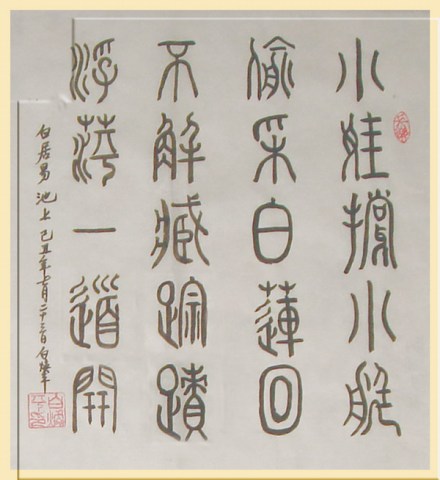 小娃撐小艇
偷采白蓮回
不解臧踪蹟
浮萍一道開
白居易 池上 己丑年七月二十三日